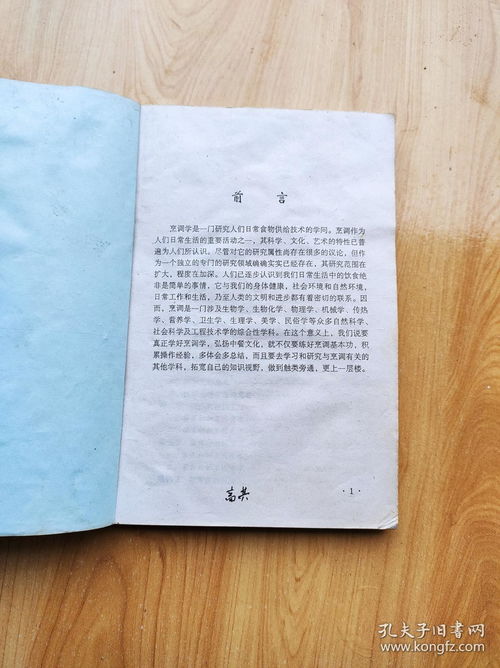 前言
烹调学是一门研究人们日常食物供给技术的学问。烹调作为
人们日常生活的重要活动之一，其科学、文化、艺术的特性已普
遍为人们所认识，尽管对它的研究属性尚存在很多的议论，但作
为一个独立的专门的研究领域确确实实已经存在，其研究范围在
扩大，程度在加深。人们已逐步认识到我们日常生活中的饮食绝
非是简单的事情，它与我们的身体健康，社会环境和自然环境，
日常工作和生活，乃至人类的文明和进步都有着密切的联系。因
而，烹调是一门涉及生物学、生物化学、物理学、机械学、传热
学、营养学、卫生学、生理学、美学、民俗学等众多自然科学、
社会科学及工程技术学的综合性学科。在这个意义上，我们说要
真正学好烹调学，弘扬中餐文化，就不仅要练好烹调基本功，积
累操作经验，多体会多总结，而且要去学习和研究与烹调有关的
其他学科，拓宽自己的知识视野，做到触类旁通，更上一层楼。
·1·
孔夫子旧书网
www.kongfz.com